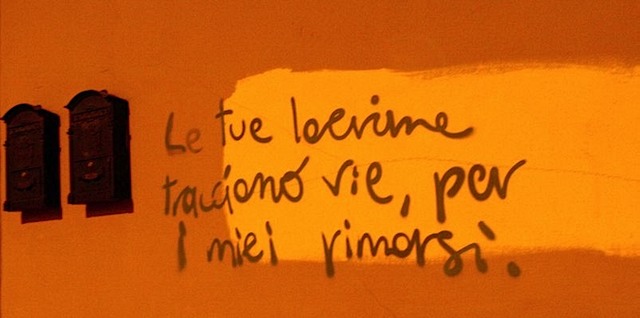 Le tue lacrime
tracciano vie, per
i miei rimorsi.